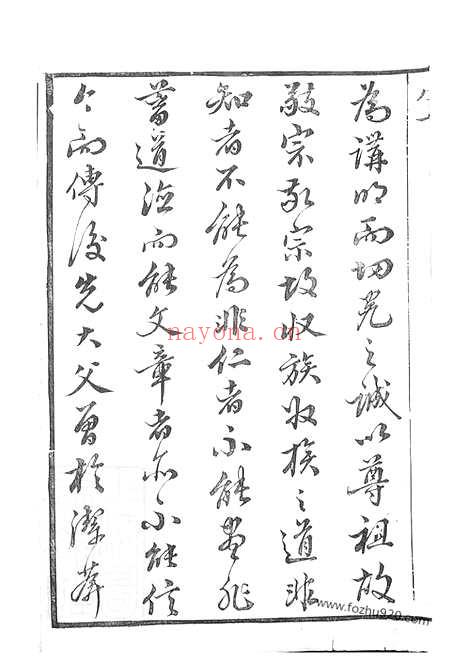 為講明而切究之誠以尊祖故
敬宗敬宗故収族収族之道非
知者不能為非仁者不能盡非
蓄道德而能文章者亦不能信
今而傳後先大父曾於
nayona.cn
www.fozhu920.com